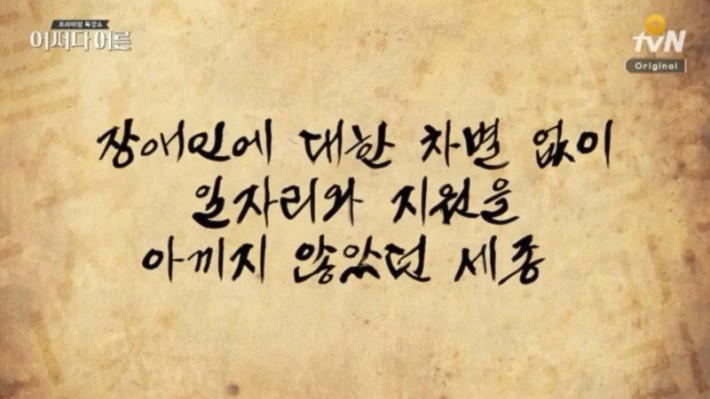 프리미엄 특강쇼
어쩌다어른
tvN
Original
장애인에 대한 차별 없이
일자리와 지원을
아끼지 않았던 세종